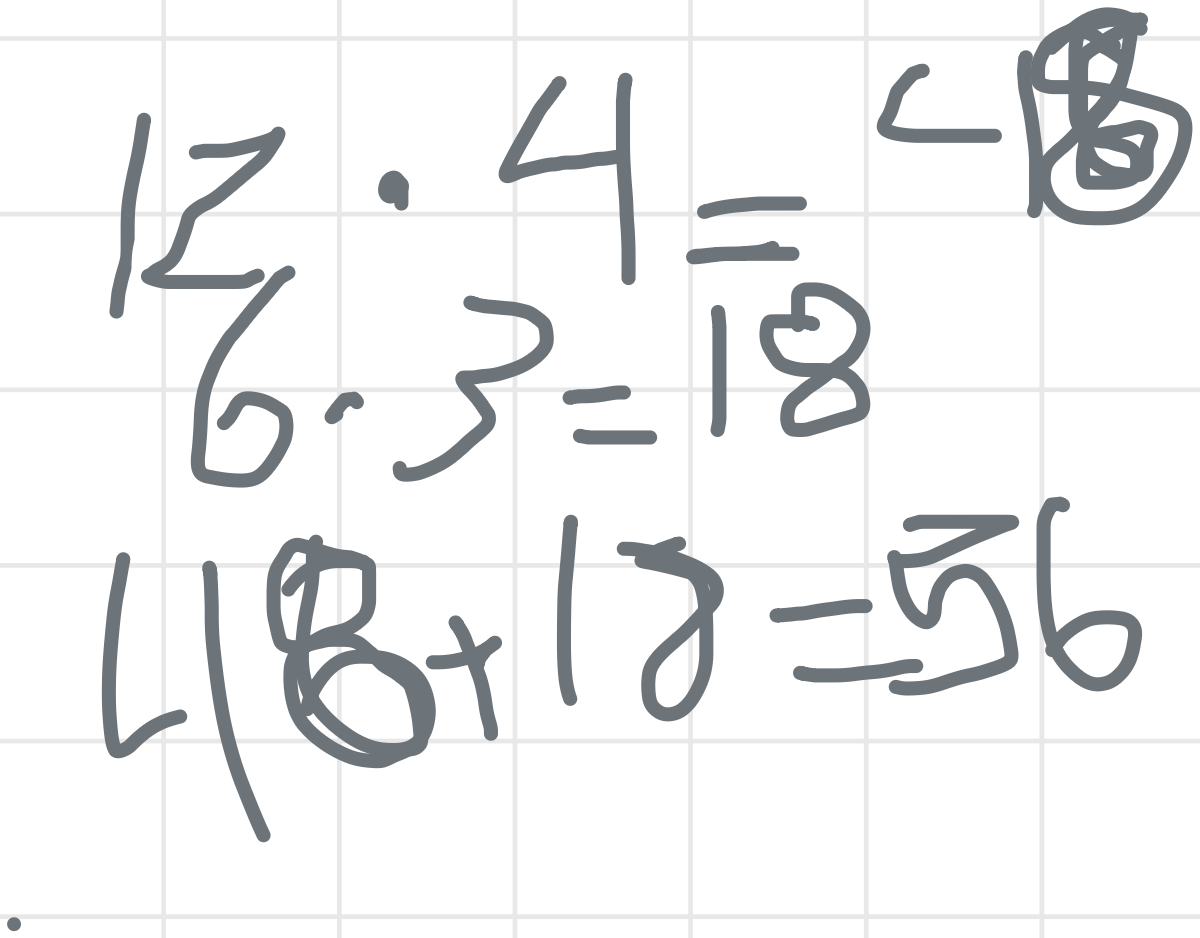 12 · 4 = 48
6 · 3 = 18
48 + 18 = 56